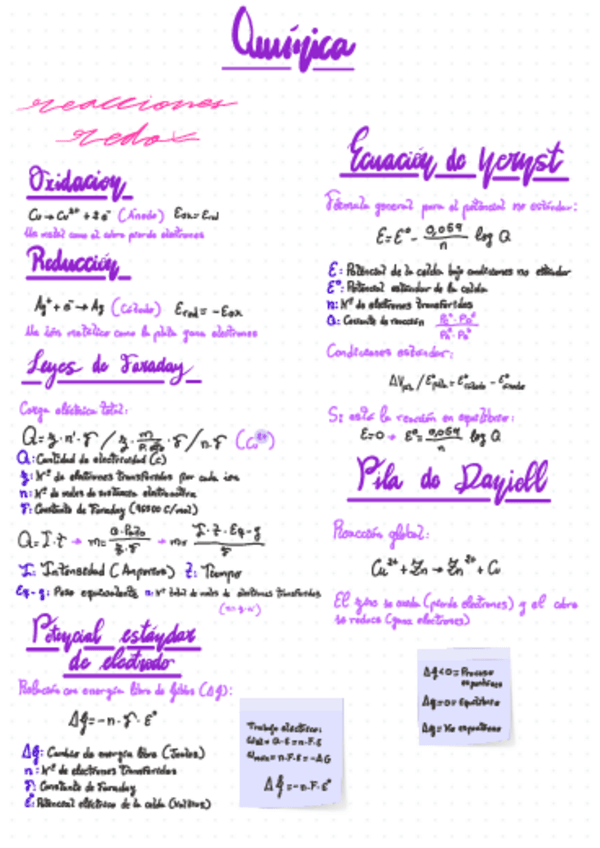 Química
reacciones
redox
Oxidación
Cu → Cu²⁺ + 2e⁻ (Ánodo) Eox = Ered
Un metal como el cobre pierde electrones
Reducción
Ag⁺ + e⁻ → Ag (Cátodo) Ered = -Eox
Un ión metálico como la plata gana electrones
Leyes de Faraday
Carga eléctrica total:
Q = z · n' · F / z · m/P.ato · F / n · F
Q: Cantidad de electricidad (C)
z: Nº de electrones transferidos por cada ion
n: Nº de moles de sustancia electroactiva
F: Constante de Faraday (96500 C/mol)
Q = I · t → m = Q · P.ato / z · F → m = I · t · Eq-g / F
I: Intensidad (Amperios) t: Tiempo
Eq-g: Peso equivalente n: Nº total de moles de electrones transferidos
(n = z · n')
Potencial estándar
de electrodo
Relación con energía libre de Gibbs (Δg):
Δg = -n · F · E°
Δg: Cambio de energía libre (Joules)
n: Nº de electrones transferidos
F: Constante de Faraday
E°: Potencial eléctrico de la celda (Voltios)
Trabajo eléctrico:
Wel = Q · E = n · F · E
Wmax = n · F · E = -ΔG
Δg = -n · F · E°
Ecuación de Nernst
Fórmula general para el potencial no estándar:
E = E° - 0,059/n log Q
E: Potencial de la celda bajo condiciones no estándar
E°: Potencial estándar de la celda
n: Nº de electrones transferidos
Q: Cociente de reacción
Condiciones estándar:
ΔVpila / E°pila = E°cátodo - E°ánodo
Si está la reacción en equilibrio:
E = 0 → E° = 0,059/n log Q
Pila de Daniell
Reacción global:
Cu²⁺ + Zn → Zn²⁺ + Cu
El zinc se oxida (pierde electrones) y el cobre
se reduce (gana electrones)
Δg < 0 = Proceso
espontáneo
Δg = 0 = Equilibrio
Δg = No espontáneo